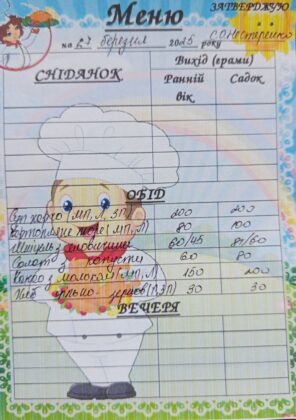 ЗАТВЕРДЖУЮ
Меню
на 27 березня 2025 року
Вихід (грами)
СНІДАНОК Ранній вік Садок
ОБІД
Суп харчо (МП, Л, ЗП) 200 200
Картопляне пюре (МП, Л) 80 100
з яловичини 60/45 81/60
Салат з капусти 60 80
Какао з молоком (МП, Л) 150 200
Хліб цільно- зернов (Л, ЗП) 30 30
ВЕЧЕРЯ